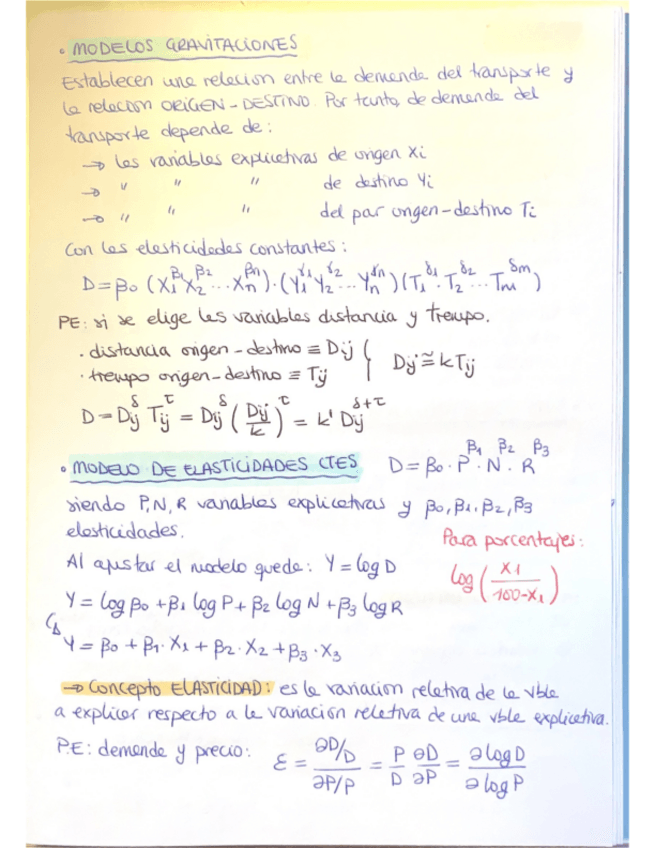 • MODELOS GRAVITACIONES
Establecen una relación entre la demanda del transporte y
la relación ORIGEN-DESTINO. Por tanto, la demanda del
transporte depende de:
→ Las variables explicativas de origen Xi
→ " " " de destino Yi
→ " " " del par origen-destino Ti
Con las elasticidades constantes:
D = β0 (X1^β1 X2^β2 ... Xn^βn) · (Y1^γ1 Y2^γ2 ... Yn^γn) (T1^δ1 · T2^δ2 ... Tm^δm)
PE: si se elige las variables distancia y tiempo.
· distancia origen-destino ≡ Dij
· tiempo origen-destino ≡ Tij } Dij ≅ k Tij
D = Dij^δ Tij^τ = Dij^δ (Dij/k)^τ = k' Dij^(δ+τ)
• MODELO DE ELASTICIDADES CTES D = β0 · P^β1 · N^β2 · R^β3
siendo P, N, R variables explicativas y β0, β1, β2, β3
elasticidades.
Para porcentajes:
log (X1 / 100-X1)
Al ajustar el modelo queda: Y = log D
Y = log β0 + β1 log P + β2 log N + β3 log R
↳ Y = β0 + β1 · X1 + β2 · X2 + β3 · X3
→ Concepto ELASTICIDAD: es la variación relativa de la vble
a explicar respecto a la variación relativa de una vble explicativa.
P.E: demanda y precio: ε = (∂D/D)/(∂P/P) = P/D ∂D/∂P = ∂ log D / ∂ log P